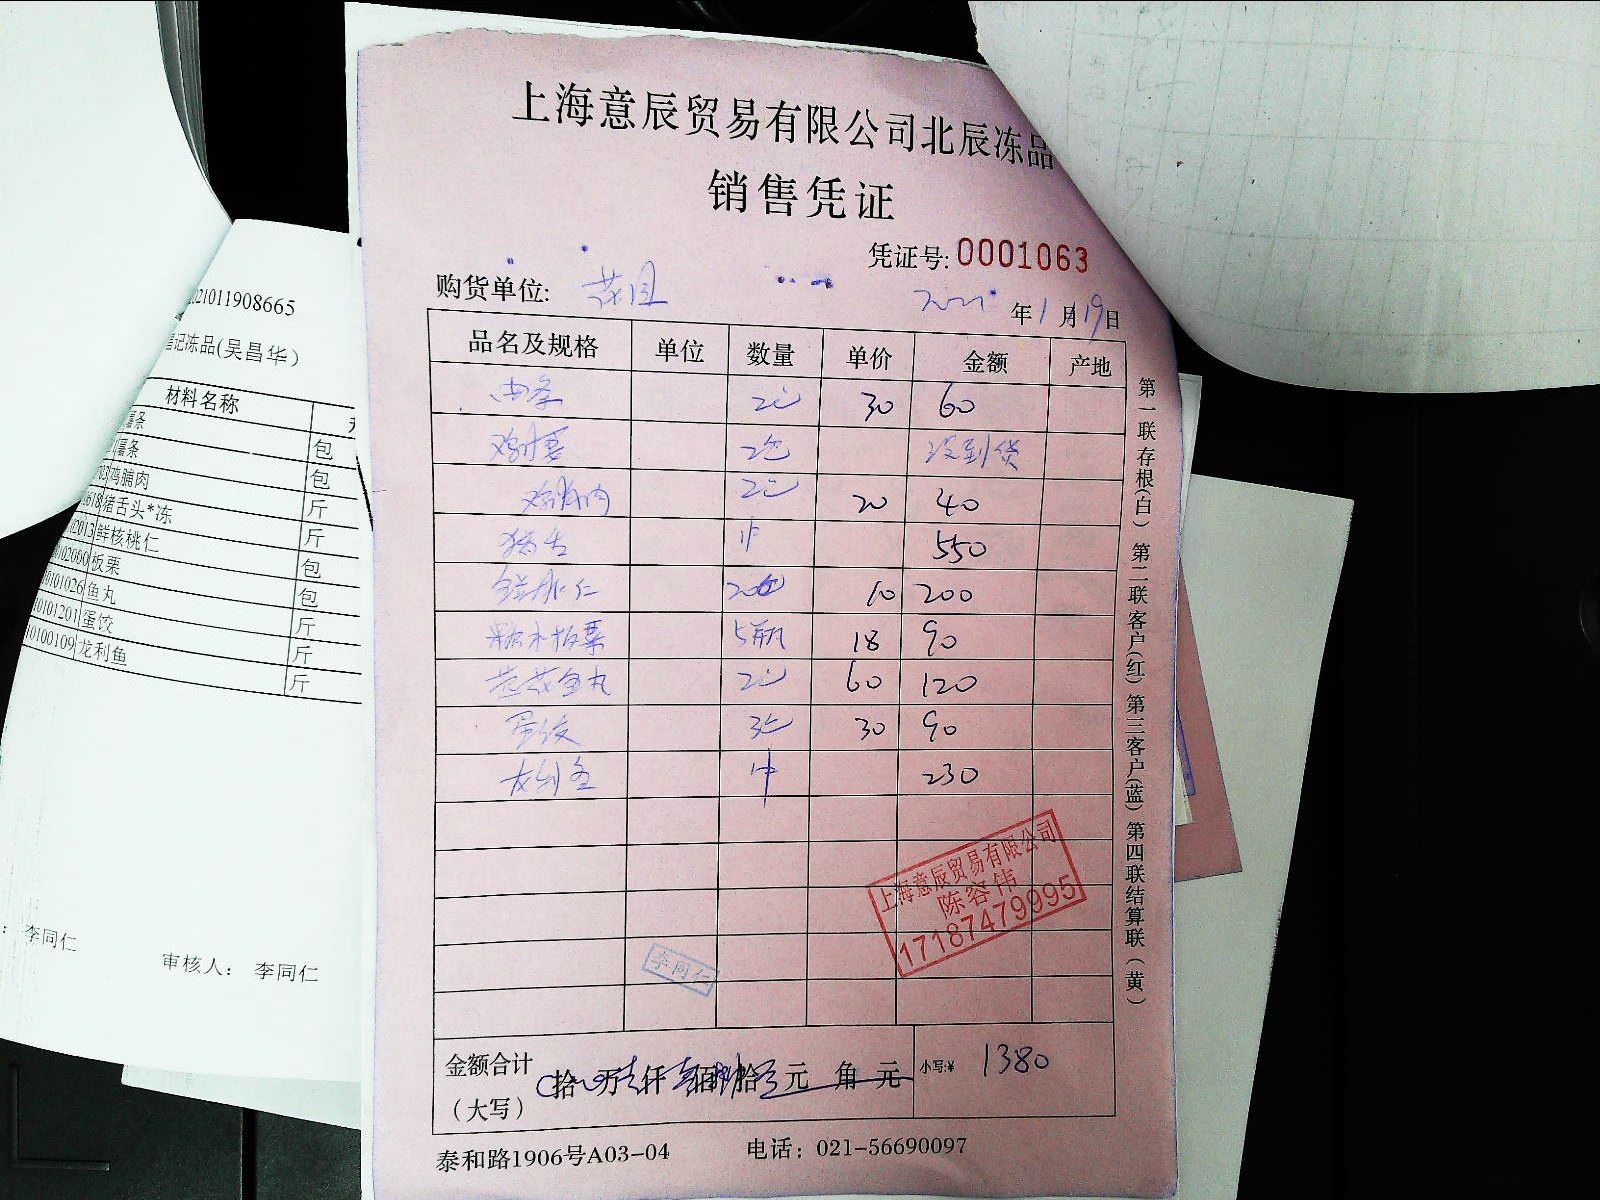 上海意辰贸易有限公司北辰冻品
销售凭证
凭证号: 0001063
购货单位:
2021 年 1 月 19 日
品名及规格 单位 数量 单价 金额 产地
30 60
鸡腰 2包 没到货
鸡脯肉 20 40
猪舌 1件 550
10 200
糖水板栗 5瓶 18 90
鱼丸 60 120
蛋饺 30 90
龙利鱼 1件 230
上海意辰贸易有限公司
陈容伟
17187479995
李同仁
金额合计
(大写)
拾 万 仟 佰 拾 元 角 元
小写:¥ 1380
泰和路1906号A03-04 电话: 021-56690097
第一联存根(白) 第二联客户(红) 第三客户(蓝) 第四联结算联(黄)
2021011908665
记冻品(吴昌华)
材料名称
薯条
薯条 包
鸡脯肉 包
猪舌头*冻 斤
鲜核桃仁 斤
板栗 包
鱼丸 包
蛋饺 斤
龙利鱼 斤
斤
李同仁
审核人: 李同仁